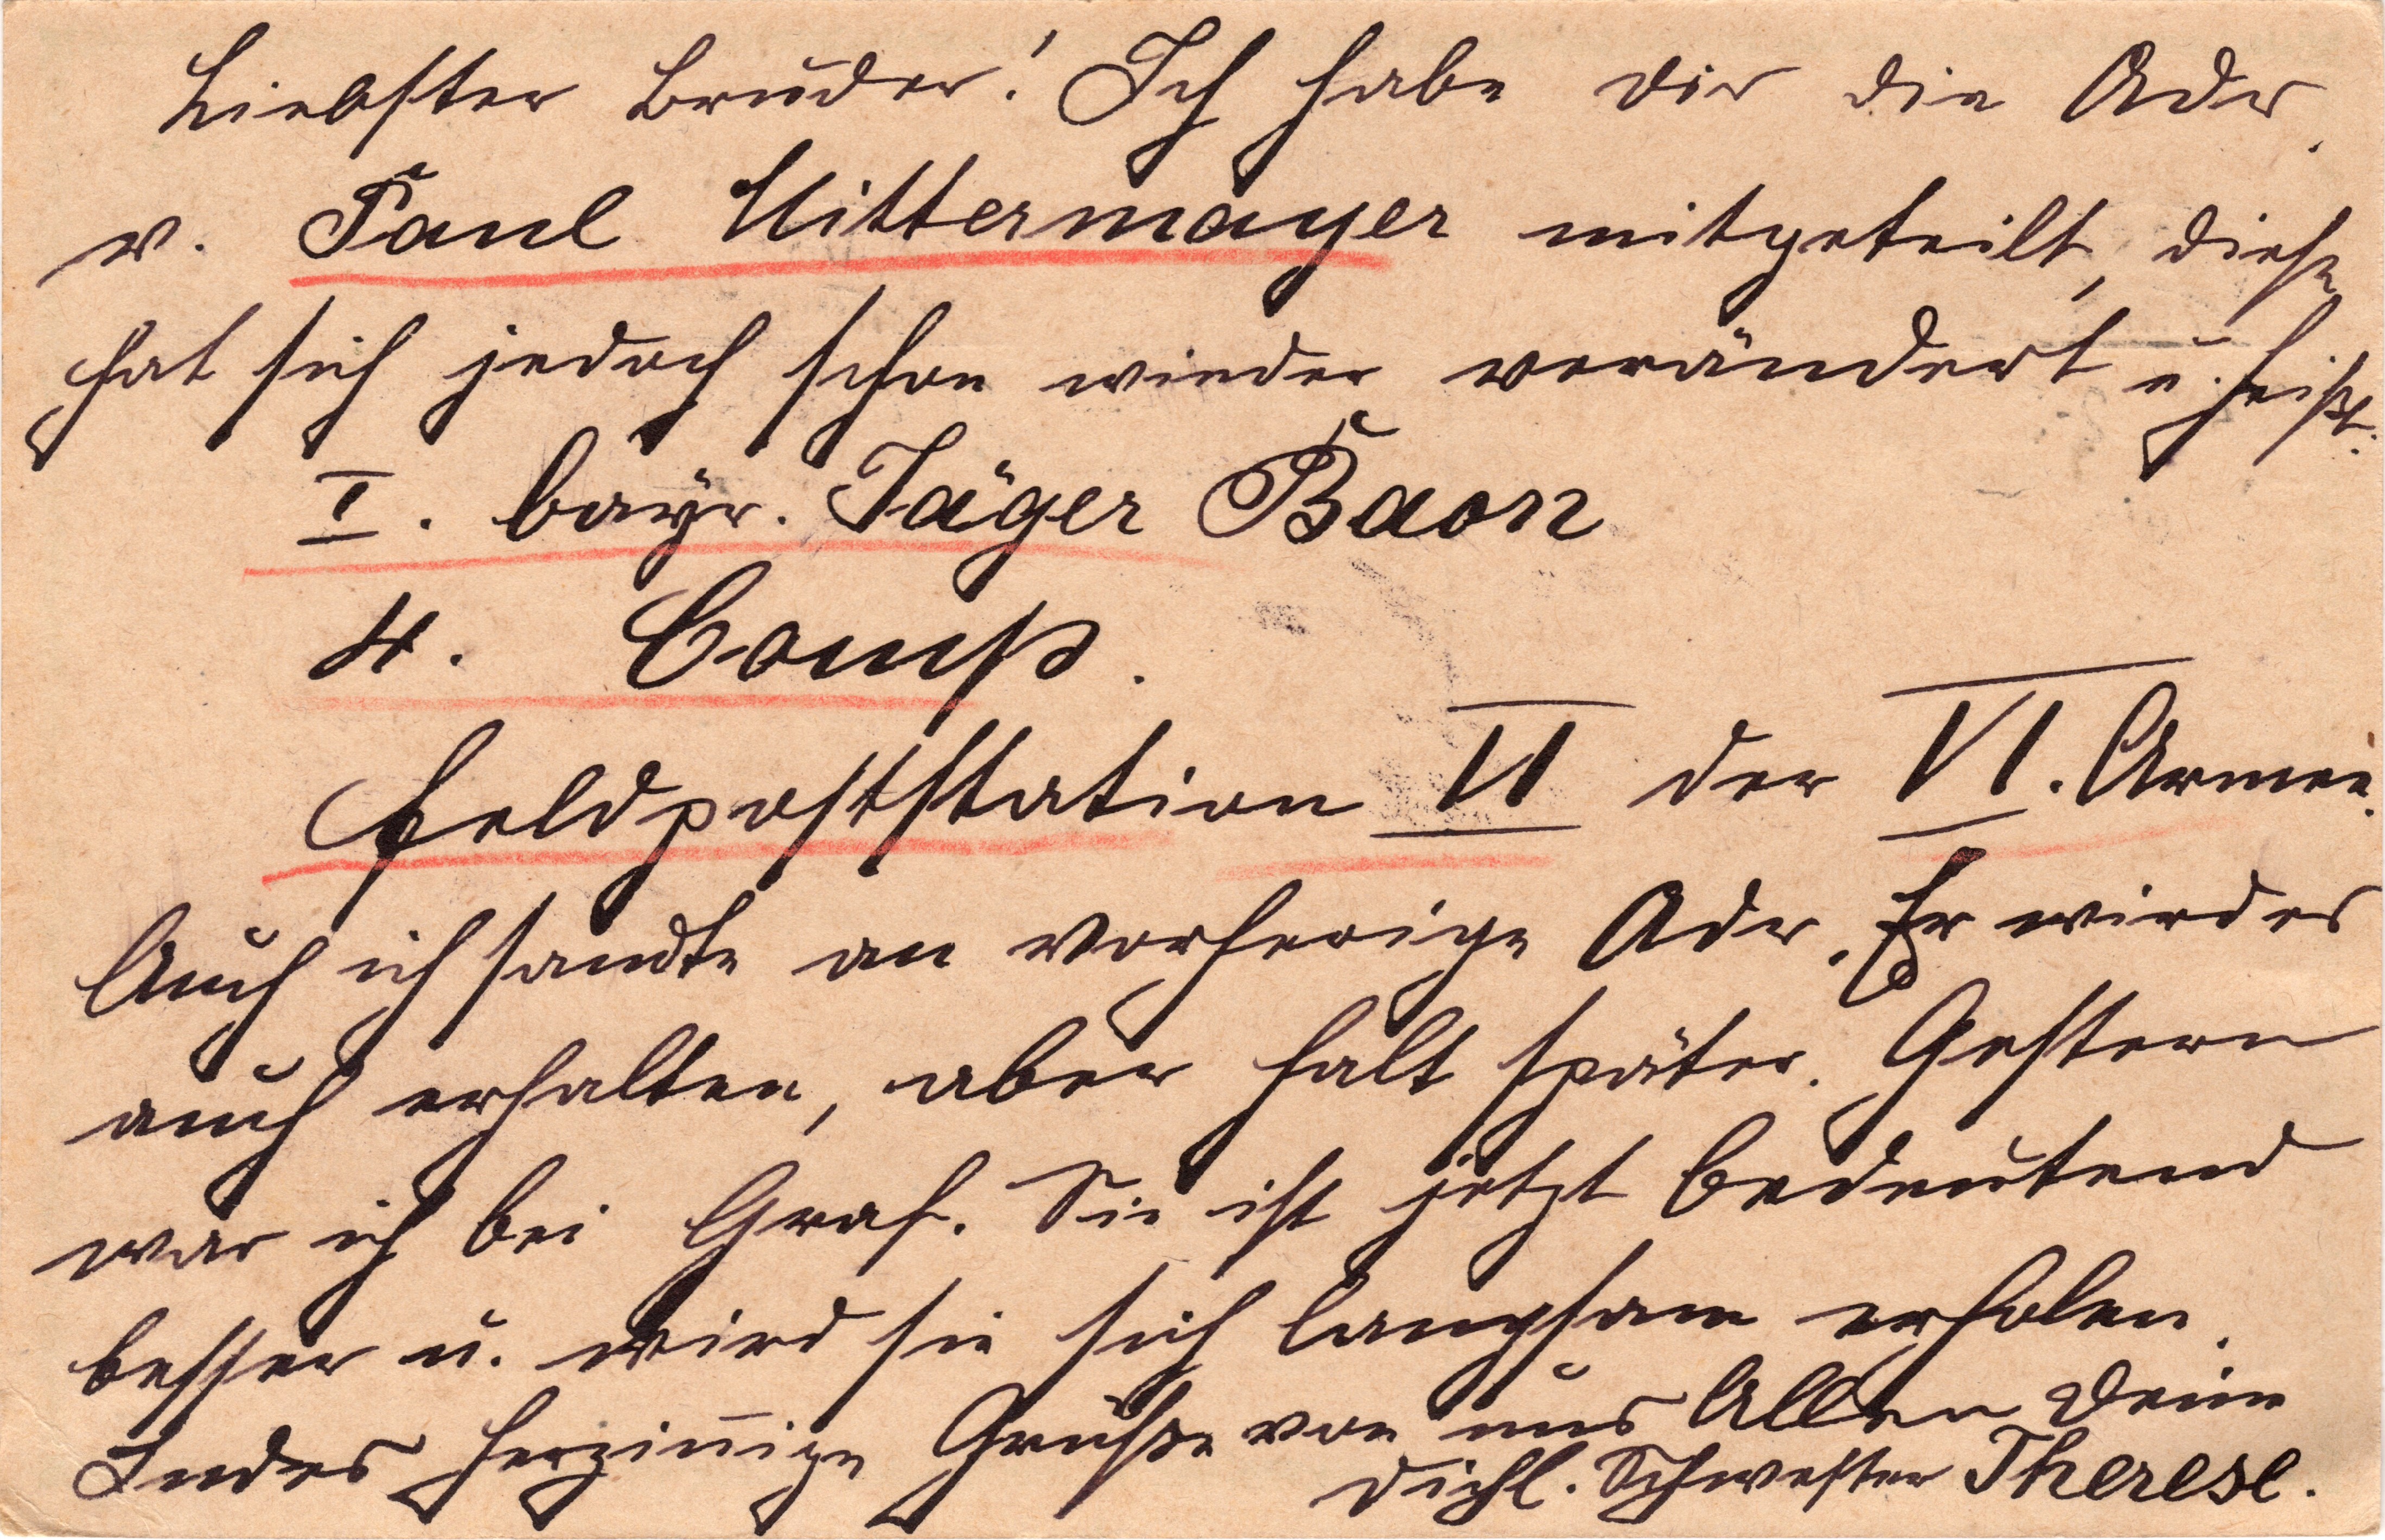 Liebster Bruder! Ich habe dir die Adr.
v. Paul Mittermayer mitgeteilt, diese
hat sich jedoch schon wieder verändert u. heißt:
I. bayr. Jäger Baon
4. Comp.
Feldpoststation VI der VI. Armee.
Auch ich sandte an vorherige Adr. Er wird es
auch erhalten, aber halt später. Gestern
war ich bei Graf. Sie ist jetzt bedeutend
besser u. wird sie sich langsam erholen.
Indes herzinnige Grüße von uns Allen Deine
Dichl. Schwester Therese.